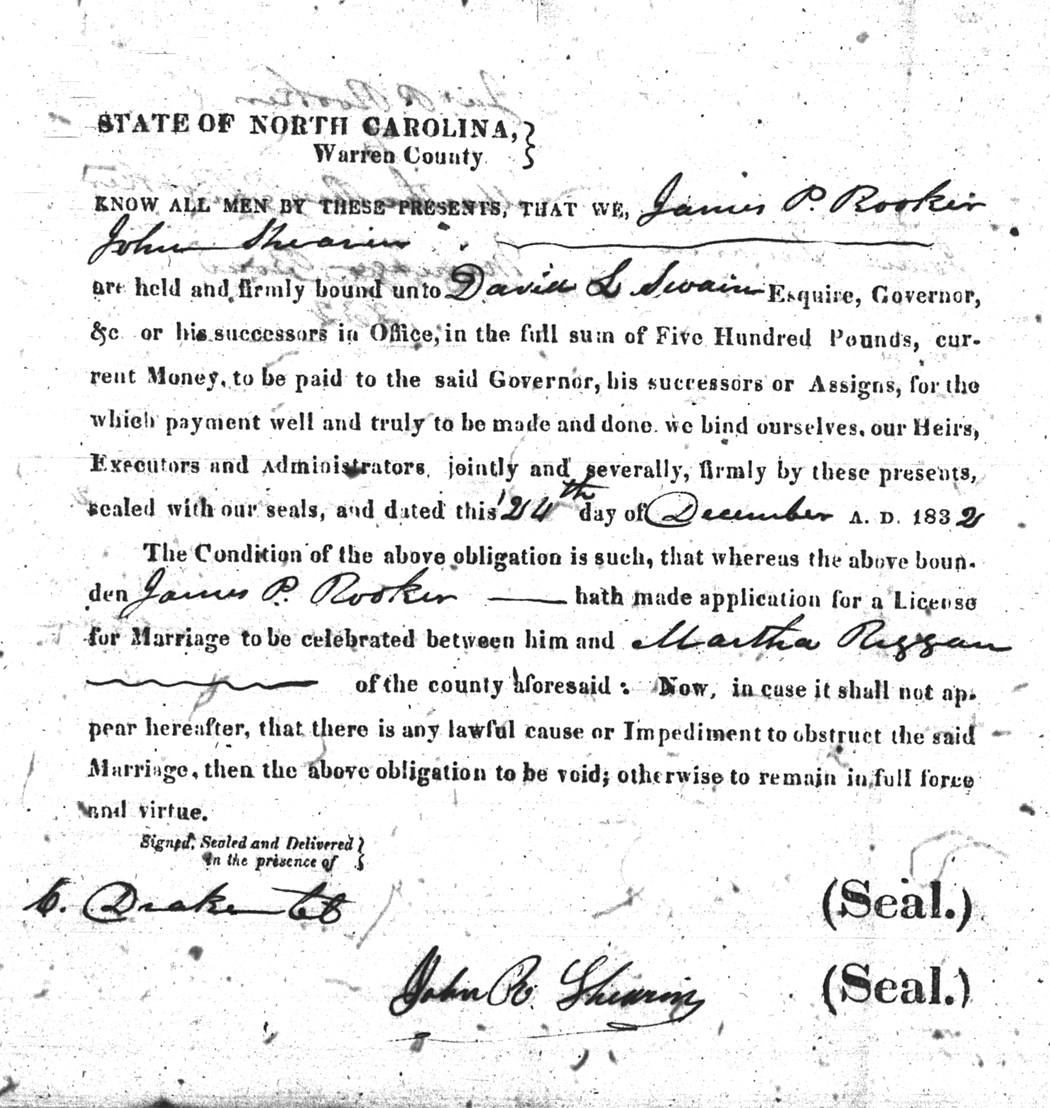 STATE OF NORTH CAROLINA,
Warren County
KNOW ALL MEN BY THESE PRESENTS, THAT WE, James P. Rooker
John Shearin
are held and firmly bound unto David L Swain Esquire, Governor,
&c or his successors in Office, in the full sum of Five Hundred Pounds, cur-
rent Money, to be paid to the said Governor, his successors or Assigns, for the
which payment well and truly to be made and done. we bind ourselves, our Heirs,
Executors and Administrators, jointly and severally, firmly by these presents,
sealed with our seals, and dated this 24th day of December A. D. 1832
The Condition of the above obligation is such, that whereas the above boun-
den James P. Rooker hath made application for a License
for Marriage to be celebrated between him and Martha Riggan
of the county aforesaid: Now, in case it shall not ap-
pear hereafter, that there is any lawful cause or Impediment to obstruct the said
Marriage, then the above obligation to be void; otherwise to remain in full force
and virtue.
Signed, Sealed and Delivered
in the presence of
C. Drake
(Seal.)
John R Shearin
(Seal.)